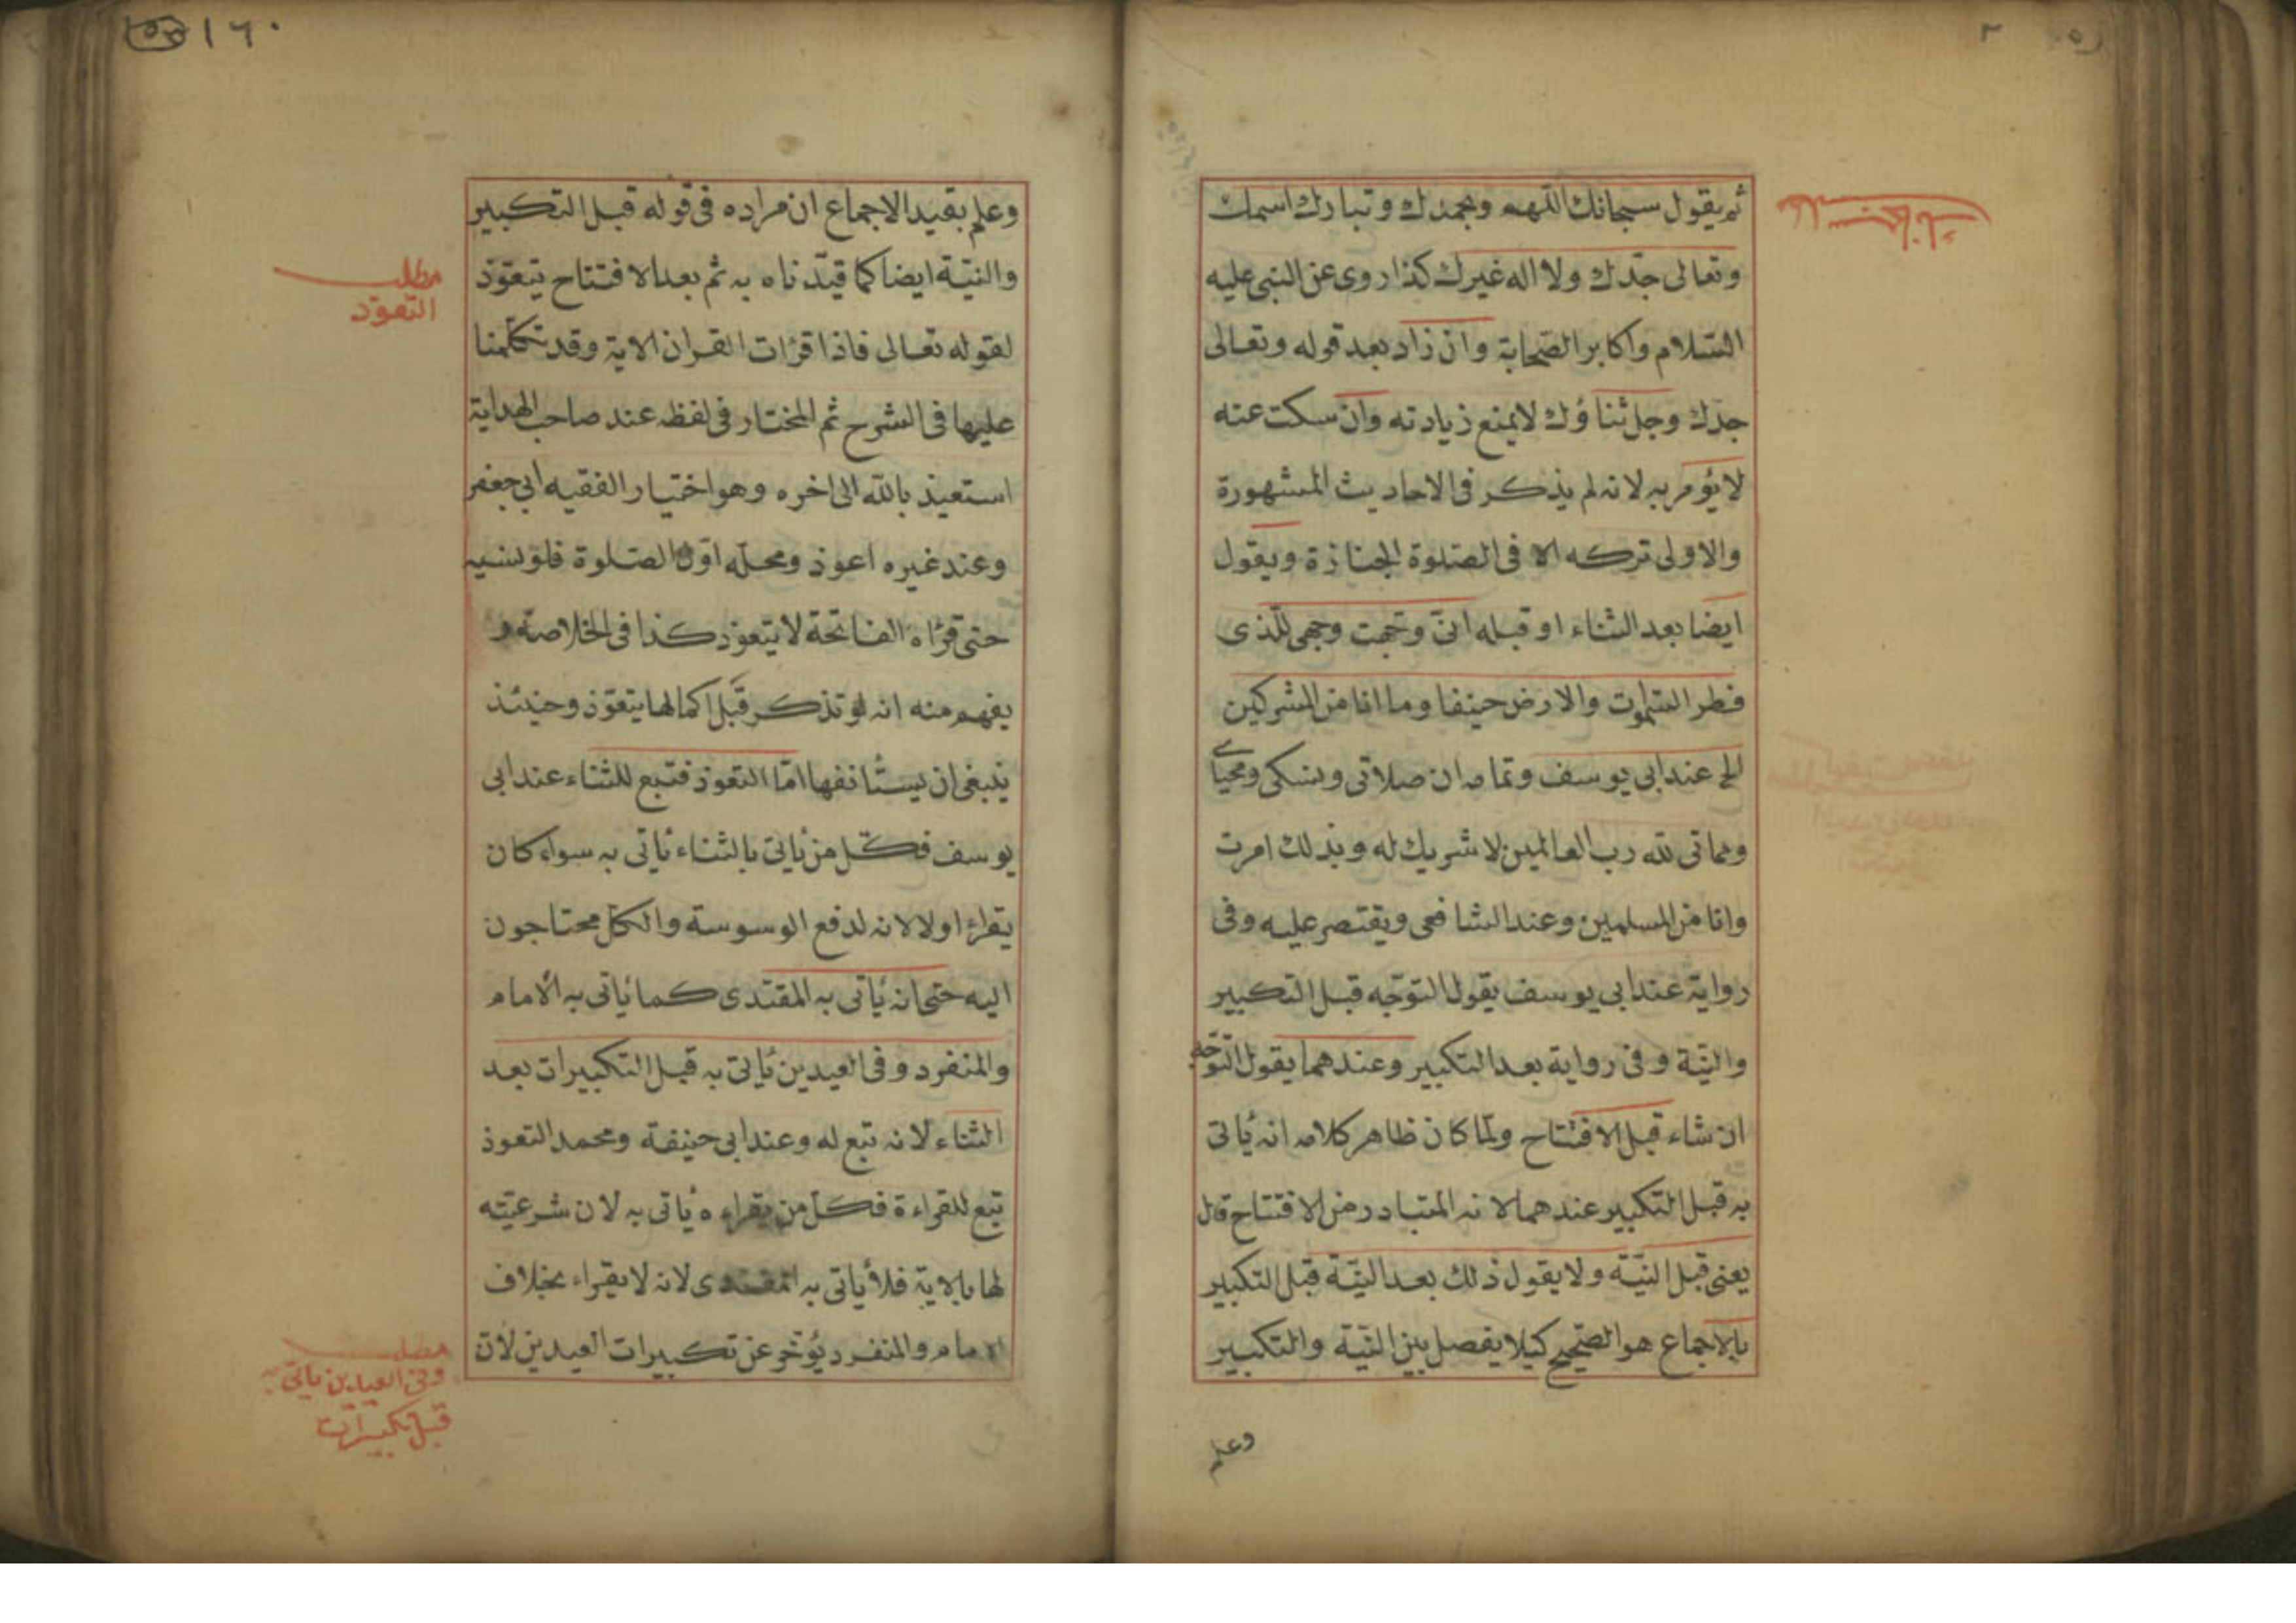 ثم يقول سبحانك اللهم وبحمدك وتبارك اسمك
وتعالى جدّك ولا اله غيرك كذا روى عن النبى عليه
السّلام واكابر الصّحابة وان زاد بعد قوله وتعالى
جدّك وجل ثناؤك لا يمنع زيادته وان سكت عنه
لا يؤمر به لانه لم يذكر فى الاحاديث المشهورة
والاولى تركه الا فى الصّلوة الجنازة ويقول
ايضا بعد الثناء او قبله انّى وجّهت وجهى للّذى
فطر السّموت والارض حنيفا وما انا من المشركين
الخ عند ابى يوسف وتمامه ان صلاتى ونسكى ومحياى
ومماتى لله رب العالمين لا شريك له وبذلك امرت
وانا من المسلمين وعند الشافعى ويقتصر عليه وفى
رواية عند ابى يوسف يقول التوجّه قبل التكبير
والنيّة وفى رواية بعد التكبير وعندهما يقول التوجّه
ان شاء قبل الافتتاح ولمّا كان ظاهر كلامه انه يأتى
به قبل التكبير عندهما لانه المتبادر من الافتتاح قال
يعنى قبل النيّة ولا يقول ذلك بعد النيّة قبل التكبير
بالاجماع هو الصّحيح كيلا يفصل بين النيّة والتكبير
وعلم
١٦٠
وعلم بقيد الاجماع ان مراده فى قوله قبل التكبير
والنيّة ايضا كما قيّدناه به ثم بعد الافتتاح يتعوّذ
لقوله تعالى فاذا قرأت القران الاية وقد تكلّمنا
عليها فى الشرح ثم المختار فى لفظه عند صاحب الهداية
استعيذ بالله الى اخره وهو اختيار الفقيه ابى جعفر
وعند غيره اعوذ ومحلّه اوّل الصّلوة فلو نسيه
حتى قرأه الفاتحة لا يتعوّذ كذا فى الخلاصة و
يفهم منه انه لو تذكر قبل اكمالها يتعوّذ وحينئذ
ينبغى ان يستأنفها امّا التعوذ فتبع للثناء عند ابى
يوسف فكلّ من يأتى بالثناء يأتى به سواء كان
يقراء او لا لانه لدفع الوسوسة والكل محتاجون
اليه حتى انه يأتى به المقتدى كما يأتى به الأمام
والمنفرد وفى العيدين يأتى به قبل التكبيرات بعد
الثناء لانه تبع له وعند ابى حنيفة ومحمد التعوذ
تبع للقراءة فكلّ من يقراءه يأتى به لان شرعيّته
لها بالاية فلا يأتى به المقتدى لانه لا يقراء بخلاف
الامام والمنفرد يؤخر عن تكبيرات العيدين لان
مطلب
التعوّذ
مطلب
وفى العيدين يأتى به
قبل تكبيرات